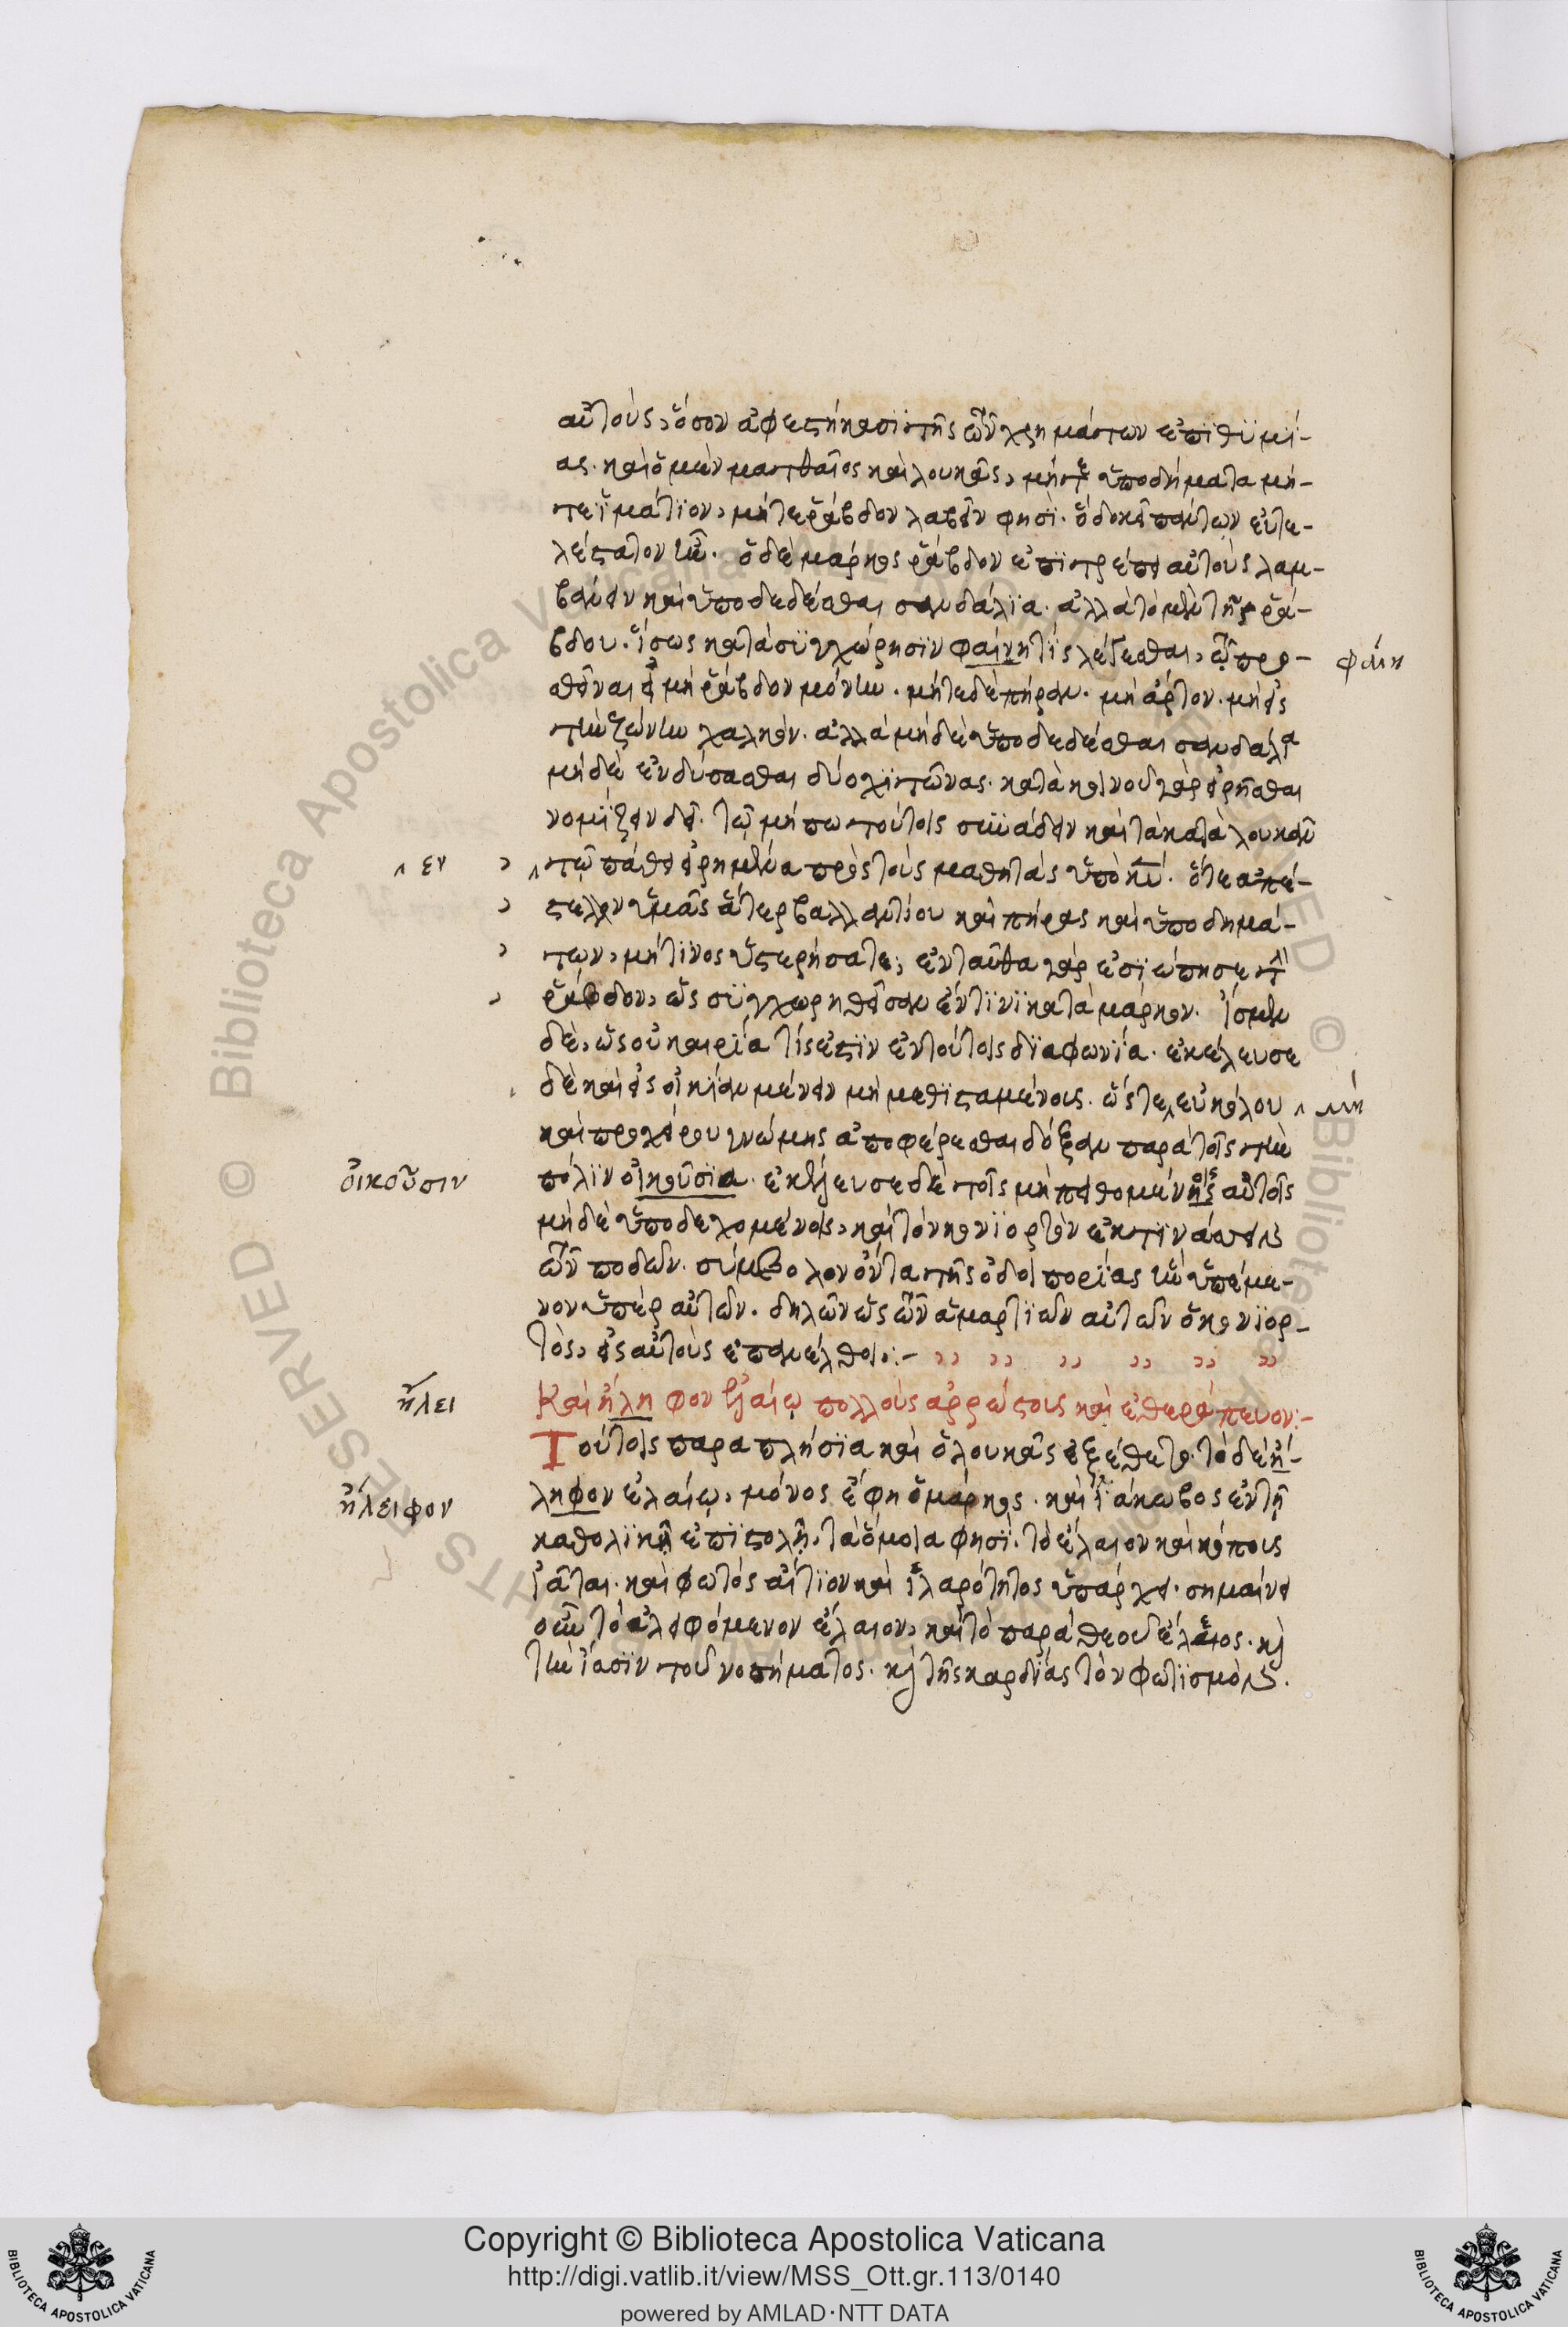 αὐτοὺς, ὅσον ἀφεστήκασϊ τῆς τῶν χρημάτων ἐπϊθϋμϊ-
ας. καὶ ὁ μὲν ματθαῖος καὶ λουκᾶς, μήτε ὑποδήματα μή-
τε ϊμάτϊον, μήτε ῥάβδον λαβεῖν φησϊ. ὃ δοκεῖ πάντων εὐτε-
λέστατον εἶναι. ὁ δὲ μάρκος ῥάβδον ἐπϊτρέπει αὐτοὺς λαμ-
βάνειν καὶ ὑποδεδέσθαι σανδάλϊα. ἀλλὰ τὸ μὲν τῆς ῥά-
βδου. ἴσως κατὰ σϋγχώρησϊν φαίνητϊς λέγεσθαι, τῷ προ-
σθεῖναι εἰ μὴ ῥάβδον μόνην. μήτε δὲ πήραν. μὴ ἄρτον. μὴ εἰς
τὴν ζώνην χαλκόν. ἀλλὰ μηδὲ ὑποδεδέσθαι σανδάλϊα
μηδὲ ἐνδύσασθαι δύο χϊτῶνας. κατὰ κοινοῦ γὰρ εἰρῆσθαι
νομϊζειν δεῖ. τῷ μήπω τούτοις συνάδειν καὶ τὰ κατὰ λουκᾶν
^ εν ^ τῷ πάθει εἰρημένα πρὸς τοὺς μαθητὰς ὑπὸ κυ. ὅτε ἀπέ-
στειλον ὑμᾶς ἄτερ βαλλαντίου καὶ πήρας καὶ ὑποδημά-
των, μή τϊνος ὑστερήσατε, ἐνταῦθα γὰρ ἐσϊώπησε τὴν
ῥάβδον, ὡς σϋγχωρηθεῖσαν ἔν τϊνϊ κατὰ μάρκον. ἴσμεν
δὲ, ὡς οὐ καιρία τίς ἐστϊν ἐν τούτοις δϊαφωνϊα. ἐκέλευσε
δὲ καὶ εἰς οἰκίαν μένειν μὴ μεθϊσταμένους. ὥστε ^ εὐκόλου ^ μὴ
καὶ προχείρου γνώμης ἀποφέρεσθαι δόξαν παρὰ τοῖς τὴν
οἰκοῦσιν
πόλϊν οἰκοῦσϊα. ἐκέλευσε δὲ τοῖς μὴ πειθομένης αὐτοῖς
μηδὲ ὑποδεχομένοις, καὶ τὸν κονϊορτὸν ἐκτϊνάσσειν
τῶν ποδῶν. σύμβολον ὄντα τῆς ὁδοιπορίας ἣν ὑπέμε-
νον ὑπὲρ αὐτῶν. δηλῶν ὡς τῶν ἁμαρτϊῶν αὐτῶν ὁ κονϊορ-
τὸς, εἰς αὐτοὺς ἐπανέλθοι:-
ἤλει
Καὶ ἤλη φον ἐλαίῳ πολλοὺς ἀρρώστους καὶ ἐθεράπευον:-
Τούτοις παραπλήσϊα καὶ ὁ λουκᾶς ἐξέθετο. τὸ δὲ ἤ-
ἤλειφον
ληφον ἐλαίῳ, μόνος ἔφη ὁ μάρκος. καὶ ἰάκωβος ἐν τῇ
καθολϊκῇ ἐπϊστολῇ, τὰ ὅμοια φησϊ. τὸ ἔλαιον καὶ κόπους
ἰᾶται. καὶ φωτὸς αἴτϊον καὶ ἱλαρότητος ὑπάρχει. σημαίνει
οὖν τὸ ἀλειφόμενον ἔλαιον, καὶ τὸ παρὰ θεοῦ ἔλεος. καὶ
τὴν ἴασϊν τοῦ νοσήματος. καὶ τῆς καρδϊας τὸν φωτϊσμόν.
φαίη
Copyright © Biblioteca Apostolica Vaticana
http://digi.vatlib.it/view/MSS_Ott.gr.113/0140
powered by AMLAD·NTT DATA
BIBLIOTECA APOSTOLICA VATICANA
BIBLIOTECA APOSTOLICA VATICANA